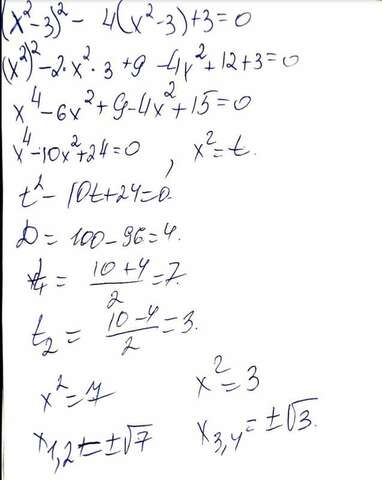 (x²-3)² - 4(x²-3)+3=0
(x²)²-2·x²·3+9-4x²+12+3=0
x⁴-6x²+9-4x²+15=0
x⁴-10x²+24=0, x²=t.
t²-10t+24=0.
D=100-96=4.
t₁=(10+4)/2=7.
t₂=(10-4)/2=3.
x²=7 x²=3
x₁,₂=±√7 x₃,₄=±√3.